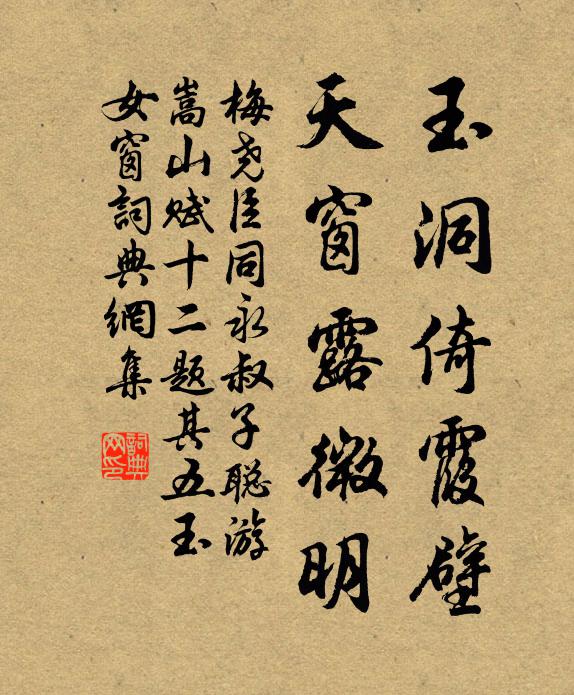 玉洞倚霞壁
天窗露微明
梅尧臣同永叔子聪游
嵩山赋十二题其五玉
女窗詞典網集
詞典網印